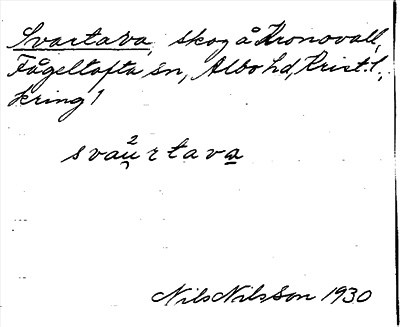 Svartava, skog å Kronovall,
Fågeltofta sn, Albo hd, Krist. l.
kring 1
svau̯²rtava
Nils Nilsson 1930